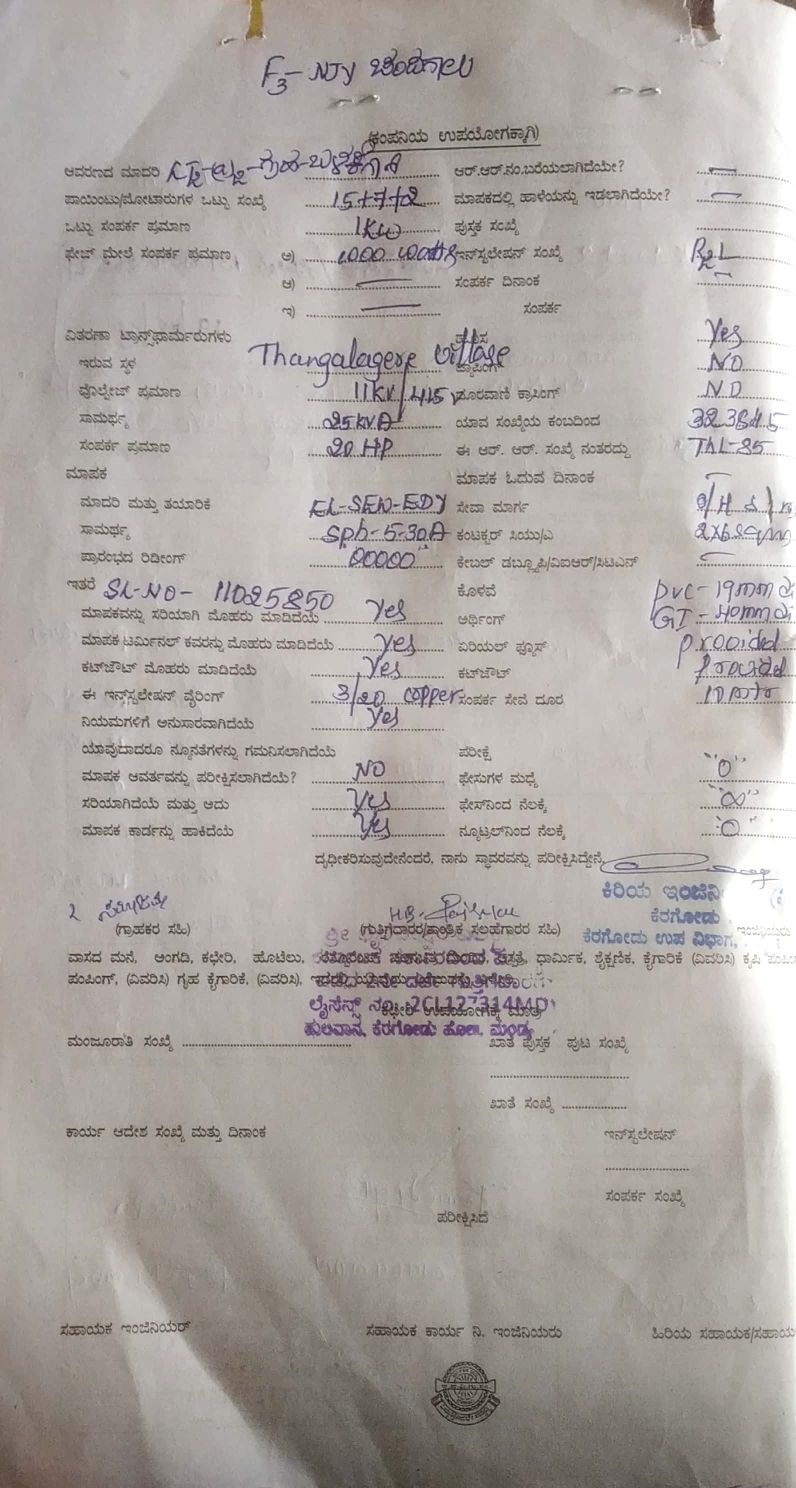 F3- NJY ಚಂದಗಾಲು
(ಕಂಪನಿಯ ಉಪಯೋಗಕ್ಕಾಗಿ)
ಆವರಣದ ಮಾದರಿ ಆರ್.ಆರ್.ನಂ.ಬರೆಯಲಾಗಿದೆಯೇ? —
ಪಾಯಿಂಟು/ಮೋಟಾರುಗಳ ಒಟ್ಟು ಸಂಖ್ಯೆ 15+7+2 ಮಾಪಕದಲ್ಲಿ ಹಾಳೆಯನ್ನು ಇಡಲಾಗಿದೆಯೇ? —
ಒಟ್ಟು ಸಂಪರ್ಕ ಪ್ರಮಾಣ 1KW ಪುಸ್ತಕ ಸಂಖ್ಯೆ
ಫೇಬ್ ಮೇಲೆ ಸಂಪರ್ಕ ಪ್ರಮಾಣ ಅ) 1000 watts ಇನ್‌ಸ್ಟಲೇಷನ್ ಸಂಖ್ಯೆ
ಆ) — ಸಂಪರ್ಕ ದಿನಾಂಕ
ಇ) — ಸಂಪರ್ಕ
ವಿತರಣಾ ಟ್ರಾನ್ಸ್‌ಫಾರ್ಮರುಗಳು Yes
ಇರುವ ಸ್ಥಳ Thangalagere village NO
ವೋಲ್ಟೇಜ್ ಪ್ರಮಾಣ 11KV/415 V ದೂರವಾಣಿ ಕ್ರಾಸಿಂಗ್ NO
ಸಾಮರ್ಥ್ಯ 25KVA ಯಾವ ಸಂಖ್ಯೆಯ ಕಂಬದಿಂದ
ಸಂಪರ್ಕ ಪ್ರಮಾಣ 20 HP ಈ ಆರ್. ಆರ್. ಸಂಖ್ಯೆ ನಂತರದ್ದು TAL-85
ಮಾಪಕ ಮಾಪಕ ಓದುವ ದಿನಾಂಕ —
ಮಾದರಿ ಮತ್ತು ತಯಾರಿಕೆ EL-SEW-EDY ಸೇವಾ ಮಾರ್ಗ
ಸಾಮರ್ಥ್ಯ Sph-5-30A ಕಂಟಕ್ಟರ್ ಸಿಯು/ಎ 2x6sqmm
ಪ್ರಾರಂಭದ ರಿಡೀಂಗ್ 00000 ಕೇಬಲ್ ಡಬ್ಲ್ಯೂಪಿ/ವಿಐಆರ್/ಸಿಟಿಎನ್ —
ಇತರೆ SL-NO- 11025850 ಕೊಳವೆ PVC-19mm
ಮಾಪಕವನ್ನು ಸರಿಯಾಗಿ ಮೊಹರು ಮಾಡಿದೆಯೆ Yes ಅರ್ಥಿಂಗ್ GI-40mm
ಮಾಪಕ ಟರ್ಮಿನಲ್ ಕವರನ್ನು ಮೊಹರು ಮಾಡಿದೆಯೆ Yes ಏರಿಯಲ್ ಫ್ಯೂಸ್ provided
ಕಟ್‌ಔಟ್ ಮೊಹರು ಮಾಡಿದೆಯೆ Yes ಕಟ್‌ಔಟ್ provided
ಈ ಇನ್‌ಸ್ಟಲೇಷನ್ ವೈರಿಂಗ್ 3/20 copper ಸಂಪರ್ಕ ಸೇವೆ ದೂರ
ನಿಯಮಗಳಿಗೆ ಅನುಸಾರವಾಗಿದೆಯೆ Yes
ಯಾವುದಾದರೂ ನ್ಯೂನತೆಗಳನ್ನು ಗಮನಿಸಲಾಗಿದೆಯೆ ಪರೀಕ್ಷೆ
ಮಾಪಕ ಆವರ್ತವನ್ನು ಪರೀಕ್ಷಿಸಲಾಗಿದೆಯೆ? NO ಫೇಸುಗಳ ಮಧ್ಯೆ "0"
ಸರಿಯಾಗಿದೆಯೆ ಮತ್ತು ಅದು Yes ಫೇಸ್‌ನಿಂದ ನೆಲಕ್ಕೆ "∞"
ಮಾಪಕ ಕಾರ್ಡನ್ನು ಹಾಕಿದೆಯೆ Yes ನ್ಯೂಟ್ರಲ್‌ನಿಂದ ನೆಲಕ್ಕೆ "0"
ದೃಢೀಕರಿಸುವುದೇನೆಂದರೆ, ನಾನು ಸ್ಥಾವರವನ್ನು ಪರೀಕ್ಷಿಸಿದ್ದೇನೆ
ಕಿರಿಯ ಇಂಜಿನಿ
ಕೆರಗೋಡು
(ಗ್ರಾಹಕರ ಸಹಿ) (ಗುತ್ತಿಗೆದಾರರ/ತಾಂತ್ರಿಕ ಸಲಹೆಗಾರರ ಸಹಿ) ಕೆರಗೋಡು ಉಪ ವಿಭಾಗ, ಇಂಜಿನಿಯರು
ವಾಸದ ಮನೆ, ಅಂಗಡಿ, ಕಛೇರಿ, ಹೋಟೆಲು, ಧಾರ್ಮಿಕ, ಶೈಕ್ಷಣಿಕ, ಕೈಗಾರಿಕೆ (ವಿವರಿಸಿ) ಕೃಷಿ
ಪಂಪಿಂಗ್, (ವಿವರಿಸಿ) ಗೃಹ ಕೈಗಾರಿಕೆ, (ವಿವರಿಸಿ),
ಲೈಸೆನ್ಸ್ ನಂ: 2CL127314MD
ಹುಲಿವಾನ, ಕೆರಗೋಡು ಹೋ॥, ಮಂಡ್ಯ
ಮಂಜೂರಾತಿ ಸಂಖ್ಯೆ ಖಾತೆ ಪುಸ್ತಕ ಪುಟ ಸಂಖ್ಯೆ
ಖಾತೆ ಸಂಖ್ಯೆ
ಕಾರ್ಯ ಆದೇಶ ಸಂಖ್ಯೆ ಮತ್ತು ದಿನಾಂಕ ಇನ್‌ಸ್ಟಲೇಷನ್
ಸಂಪರ್ಕ ಸಂಖ್ಯೆ
ಪರೀಕ್ಷಿಸಿದೆ
ಸಹಾಯಕ ಇಂಜಿನಿಯರ್ ಸಹಾಯಕ ಕಾರ್ಯ ನಿ. ಇಂಜಿನಿಯರು ಹಿರಿಯ ಸಹಾಯಕ/ಸಹಾಯ